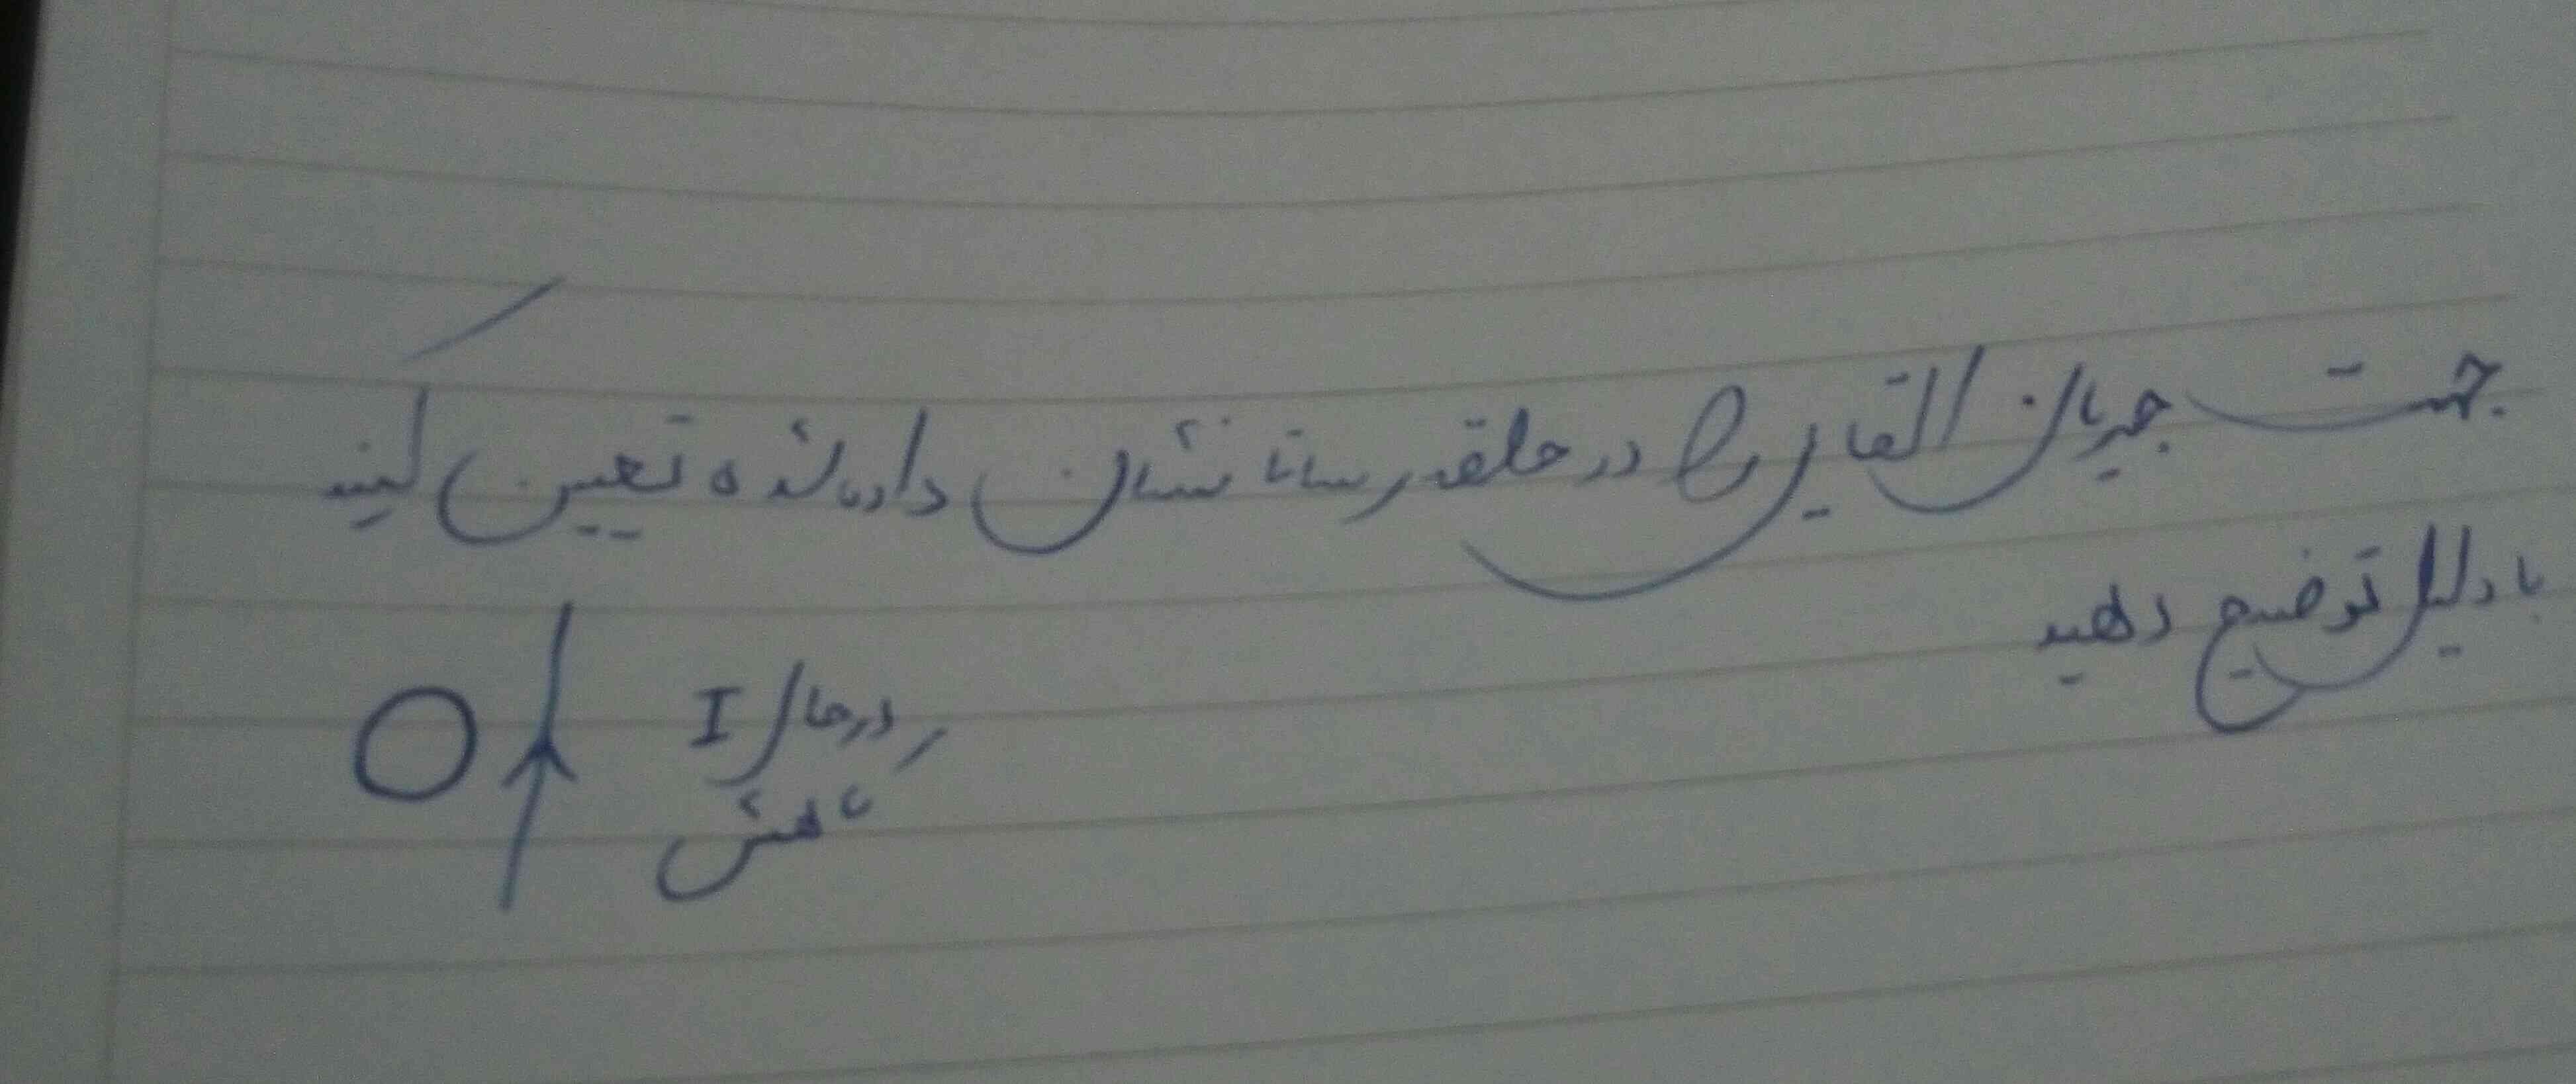 جهت جریان القایی را در حلقه رسانا نشان داده شده تعیین کنید
با دلیل توضیح دهید
I درحال
کاهش